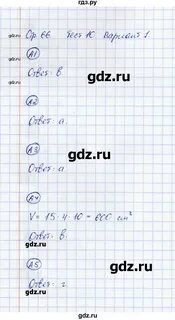 гдз.ру
Стр 66 Тест 10 Вариант 1
А1
Ответ: в.
gdz.ru
А2
Ответ: а.
gdz.ru
А3
Ответ: а.
gdz.ru
А4
V = 15 · 4 · 10 = 600 см³
Ответ: в.
gdz.ru
А5
Ответ: г.